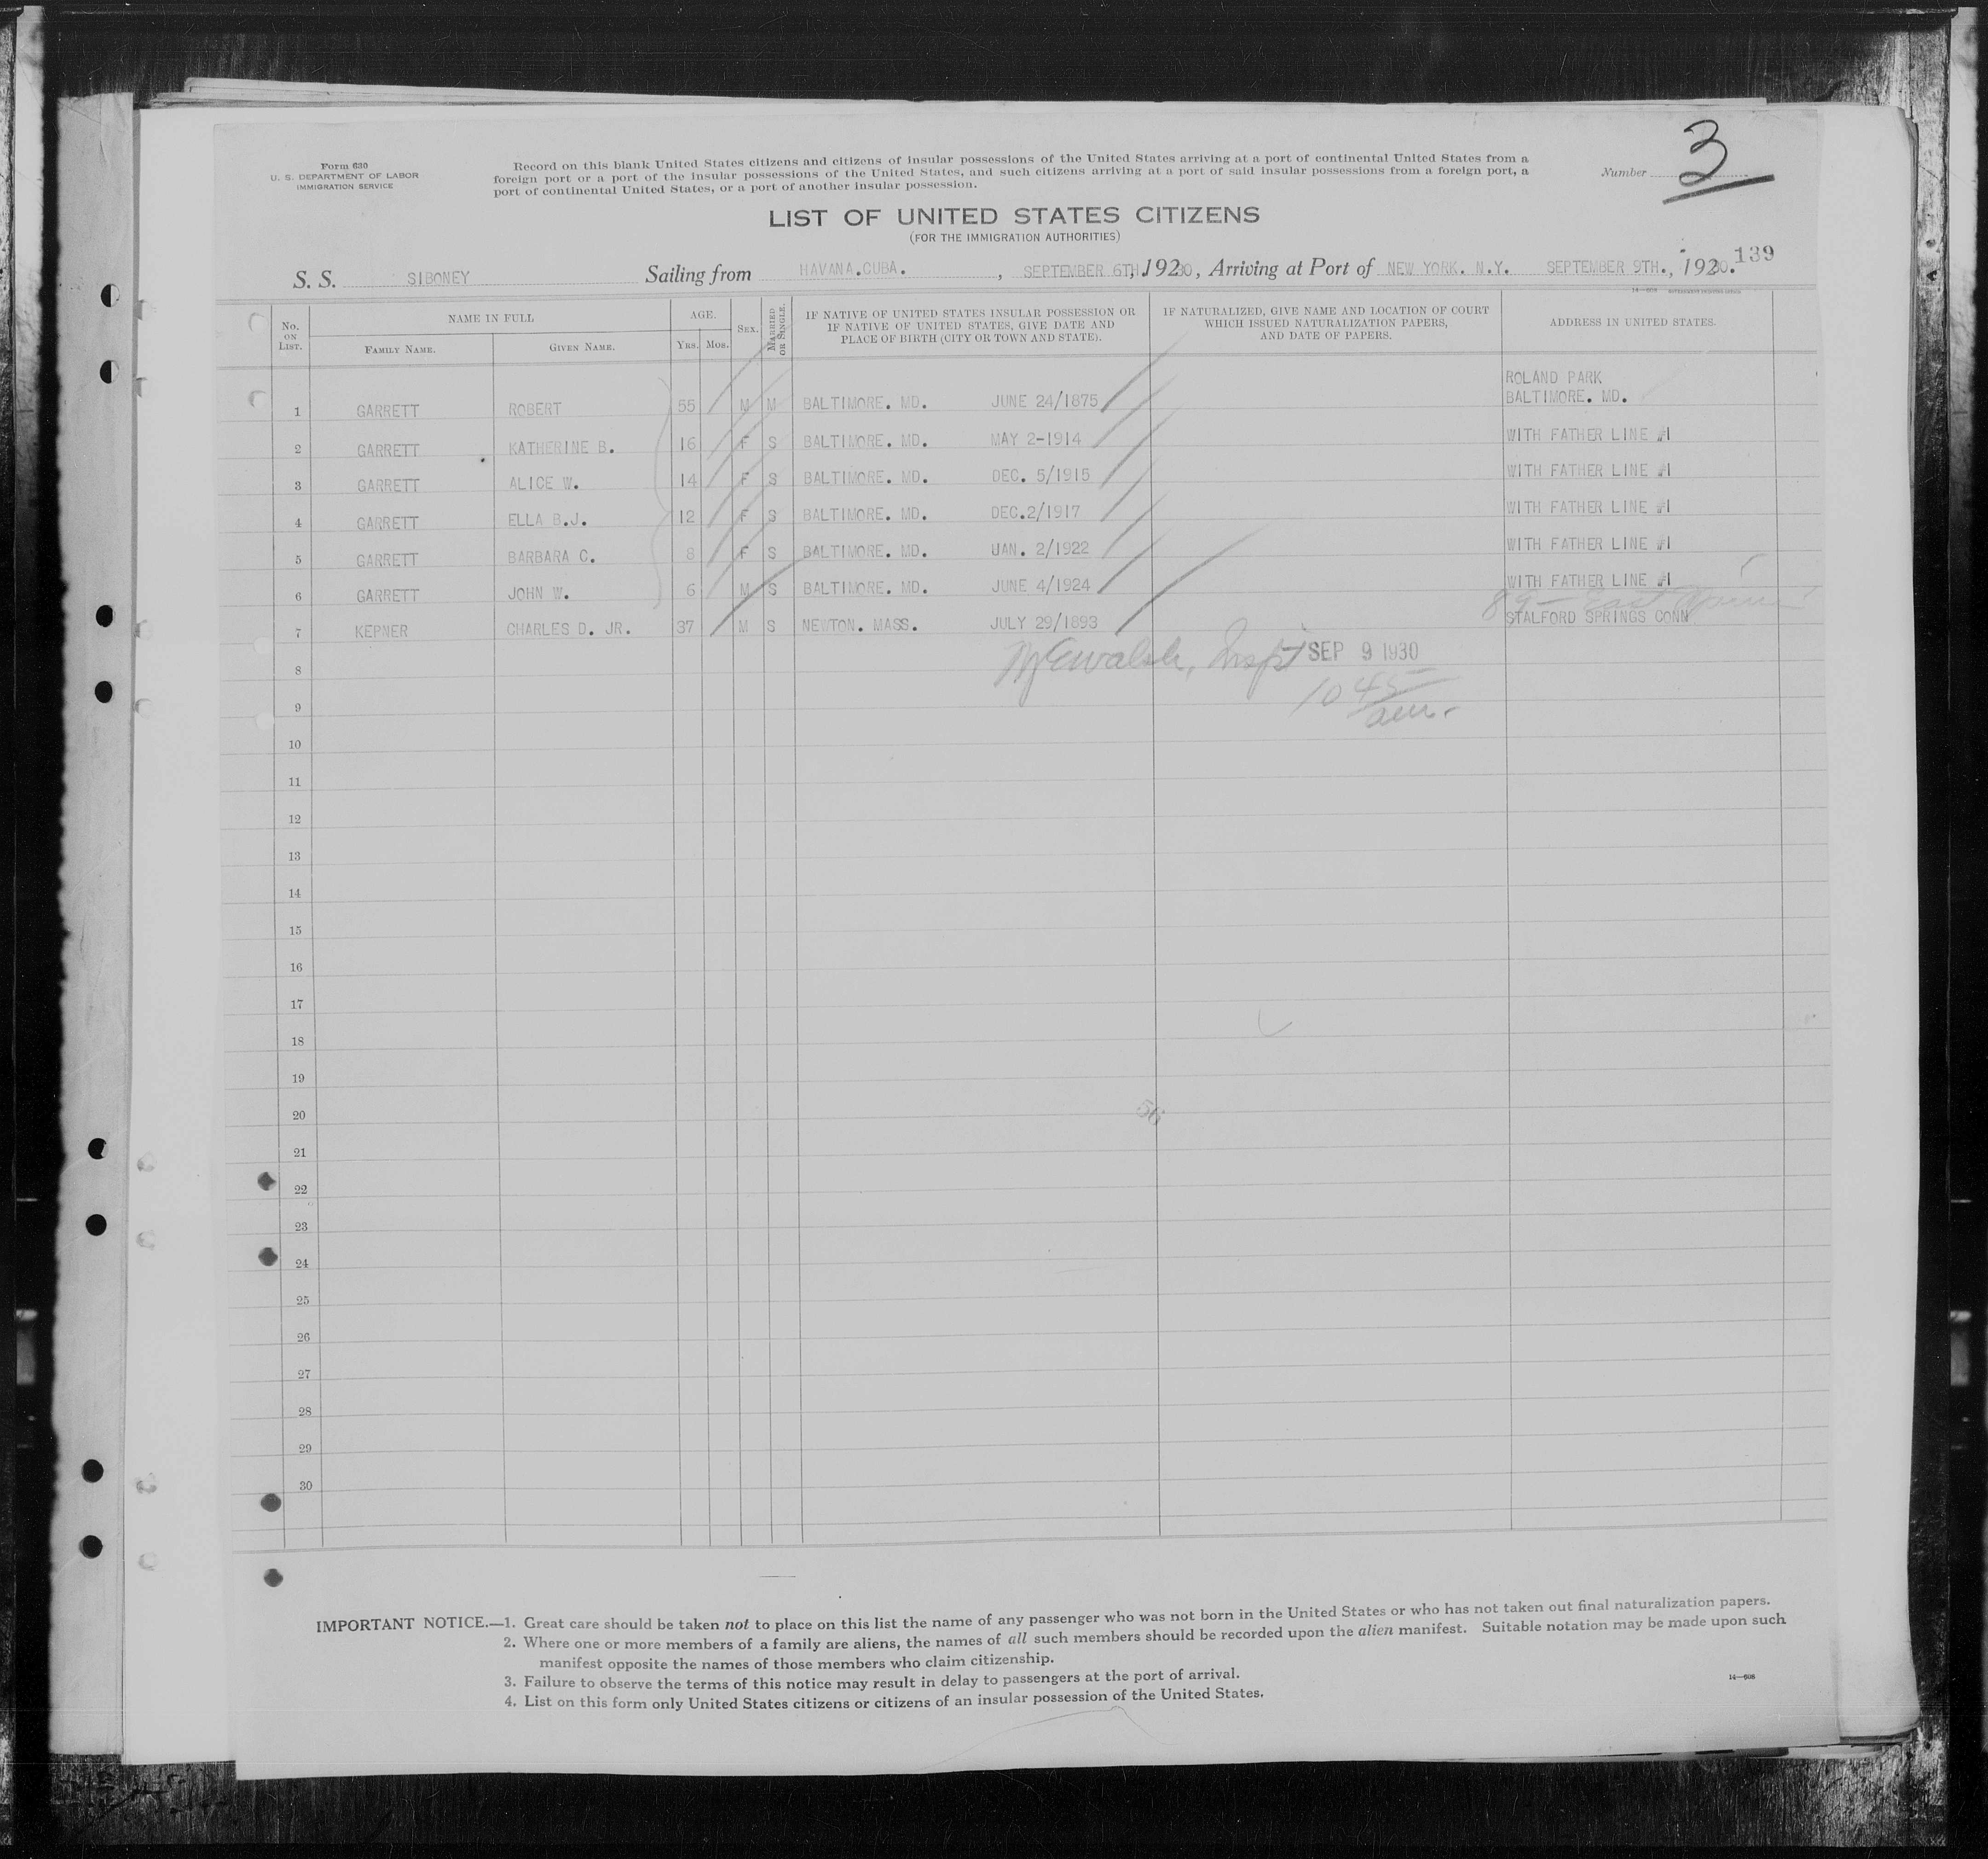 Form 630
U. S. DEPARTMENT OF LABOR
IMMIGRATION SERVICE
Record on this blank United States citizens and citizens of insular possessions of the United States arriving at a port of continental United States from a
foreign port or a port of the insular possessions of the United States, and such citizens arriving at a port of said insular possessions from a foreign port, a
port of continental United States, or a port of another insular possession.
Number 3
LIST OF UNITED STATES CITIZENS
(FOR THE IMMIGRATION AUTHORITIES)
139
S. S. SIBONEY Sailing from HAVANA.CUBA. , SEPTEMBER 6TH, 19230, Arriving at Port of NEW YORK. N.Y. SEPTEMBER 9TH., 19230.
14—608
No. ON LIST. NAME IN FULL AGE. SEX. MARRIED OR SINGLE. IF NATIVE OF UNITED STATES INSULAR POSSESSION OR IF NATIVE OF UNITED STATES, GIVE DATE AND PLACE OF BIRTH (CITY OR TOWN AND STATE). IF NATURALIZED, GIVE NAME AND LOCATION OF COURT WHICH ISSUED NATURALIZATION PAPERS, AND DATE OF PAPERS. ADDRESS IN UNITED STATES.
FAMILY NAME. GIVEN NAME. YRS. MOS.
ROLAND PARK
1 GARRETT ROBERT 55 M M BALTIMORE. MD. JUNE 24/1875 BALTIMORE. MD.
2 GARRETT KATHERINE B. 16 F S BALTIMORE. MD. MAY 2-1914 WITH FATHER LINE #1
3 GARRETT ALICE W. 14 F S BALTIMORE. MD. DEC. 5/1915 WITH FATHER LINE #1
4 GARRETT ELLA B.J. 12 F S BALTIMORE. MD. DEC.2/1917 WITH FATHER LINE #1
5 GARRETT BARBARA C. 8 F S BALTIMORE. MD. JAN. 2/1922 WITH FATHER LINE #1
6 GARRETT JOHN W. 6 M S BALTIMORE. MD. JUNE 4/1924 WITH FATHER LINE #1
89 — East
7 KEPNER CHARLES D. JR. 37 M S NEWTON. MASS. JULY 29/1893 STALFORD SPRINGS CONN.
8 Walsh, Insp SEP 9 1930
10 45
am.
9
10
11
12
13
14
15
16
17
18
19
20
56
21
22
23
24
25
26
27
28
29
30
IMPORTANT NOTICE.—1. Great care should be taken not to place on this list the name of any passenger who was not born in the United States or who has not taken out final naturalization papers.
2. Where one or more members of a family are aliens, the names of all such members should be recorded upon the alien manifest. Suitable notation may be made upon such
manifest opposite the names of those members who claim citizenship.
3. Failure to observe the terms of this notice may result in delay to passengers at the port of arrival.
4. List on this form only United States citizens or citizens of an insular possession of the United States.
14—608